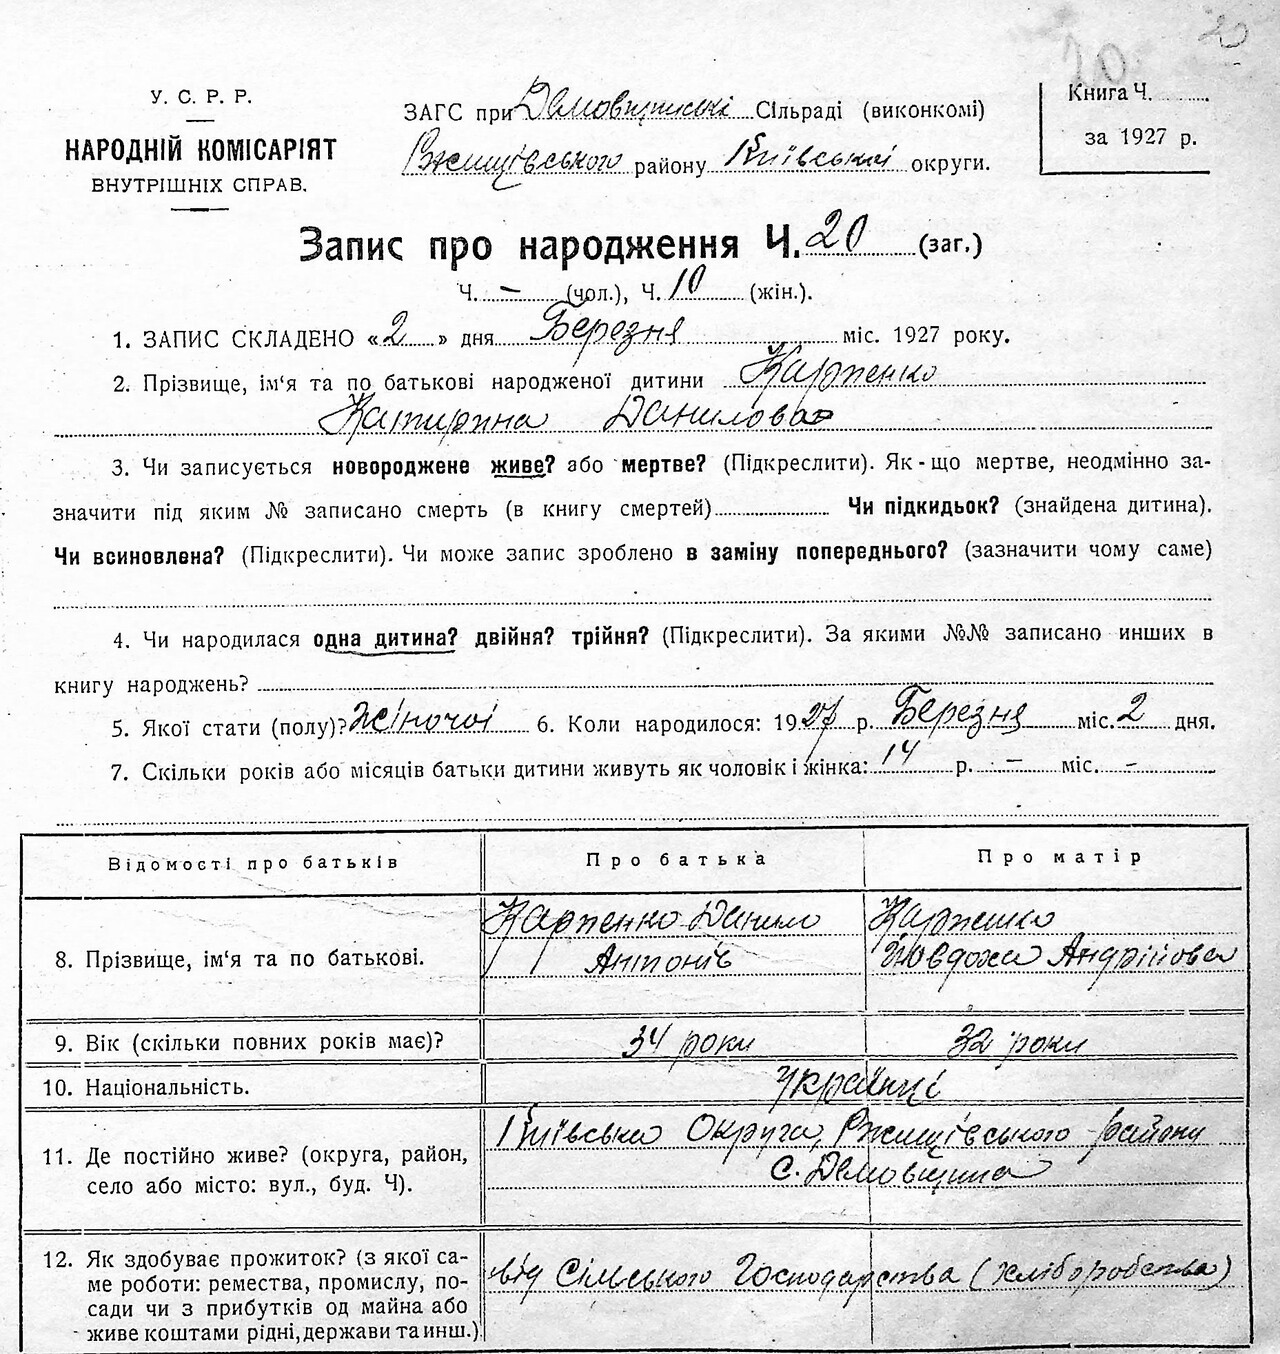 20
20
У. С. Р. Р.
НАРОДНІЙ КОМІСАРІЯТ
ВНУТРІШНІХ СПРАВ.
ЗАГС при Демовщинські Сільраді (виконкомі)
Ржищівського району Київської округи.
Книга Ч.
за 1927 р.
Запис про народження Ч. 20 (заг.)
Ч. – (чол.), Ч. 10 (жін.).
1. ЗАПИС СКЛАДЕНО «2» дня Березня міс. 1927 року.
2. Прізвище, ім‘я та по батькові народженої дитини Карпенко
Катирина Данилова
3. Чи записується новороджене живе? або мертве? (Підкреслити). Як-що мертве, неодмінно за-
значити під яким № записано смерть (в книгу смертей) Чи підкидьок? (знайдена дитина).
Чи всиновлена? (Підкреслити). Чи може запис зроблено в заміну попереднього? (зазначити чому саме)
4. Чи народилася одна дитина? двійня? трійня? (Підкреслити). За якими №№ записано инших в
книгу народжень?
5. Якої стати (полу)? Жіночої 6. Коли народилося: 1927 р. Березня міс. 2 дня.
7. Скільки років або місяців батьки дитини живуть як чоловік і жінка: 14 р. – міс. –
Відомості про батьків Про батька Про матір
8. Прізвище, ім‘я та по батькові. Карпенко Данило Карпенко
Антонів Йовдоха Андрійова
9. Вік (скільки повних років має)? 34 роки 32 роки
10. Національність. Українці
Київська Округа, Ржищівського району
11. Де постійно живе? (округа, район,
село або місто: вул., буд. Ч). с. Демовщина
12. Як здобуває прожиток? (з якої са-
ме роботи: ремества, промислу, по- від Сільського Господарства (хліборобства)
сади чи з прибутків од майна або
живе коштами рідні, держави та инш.)